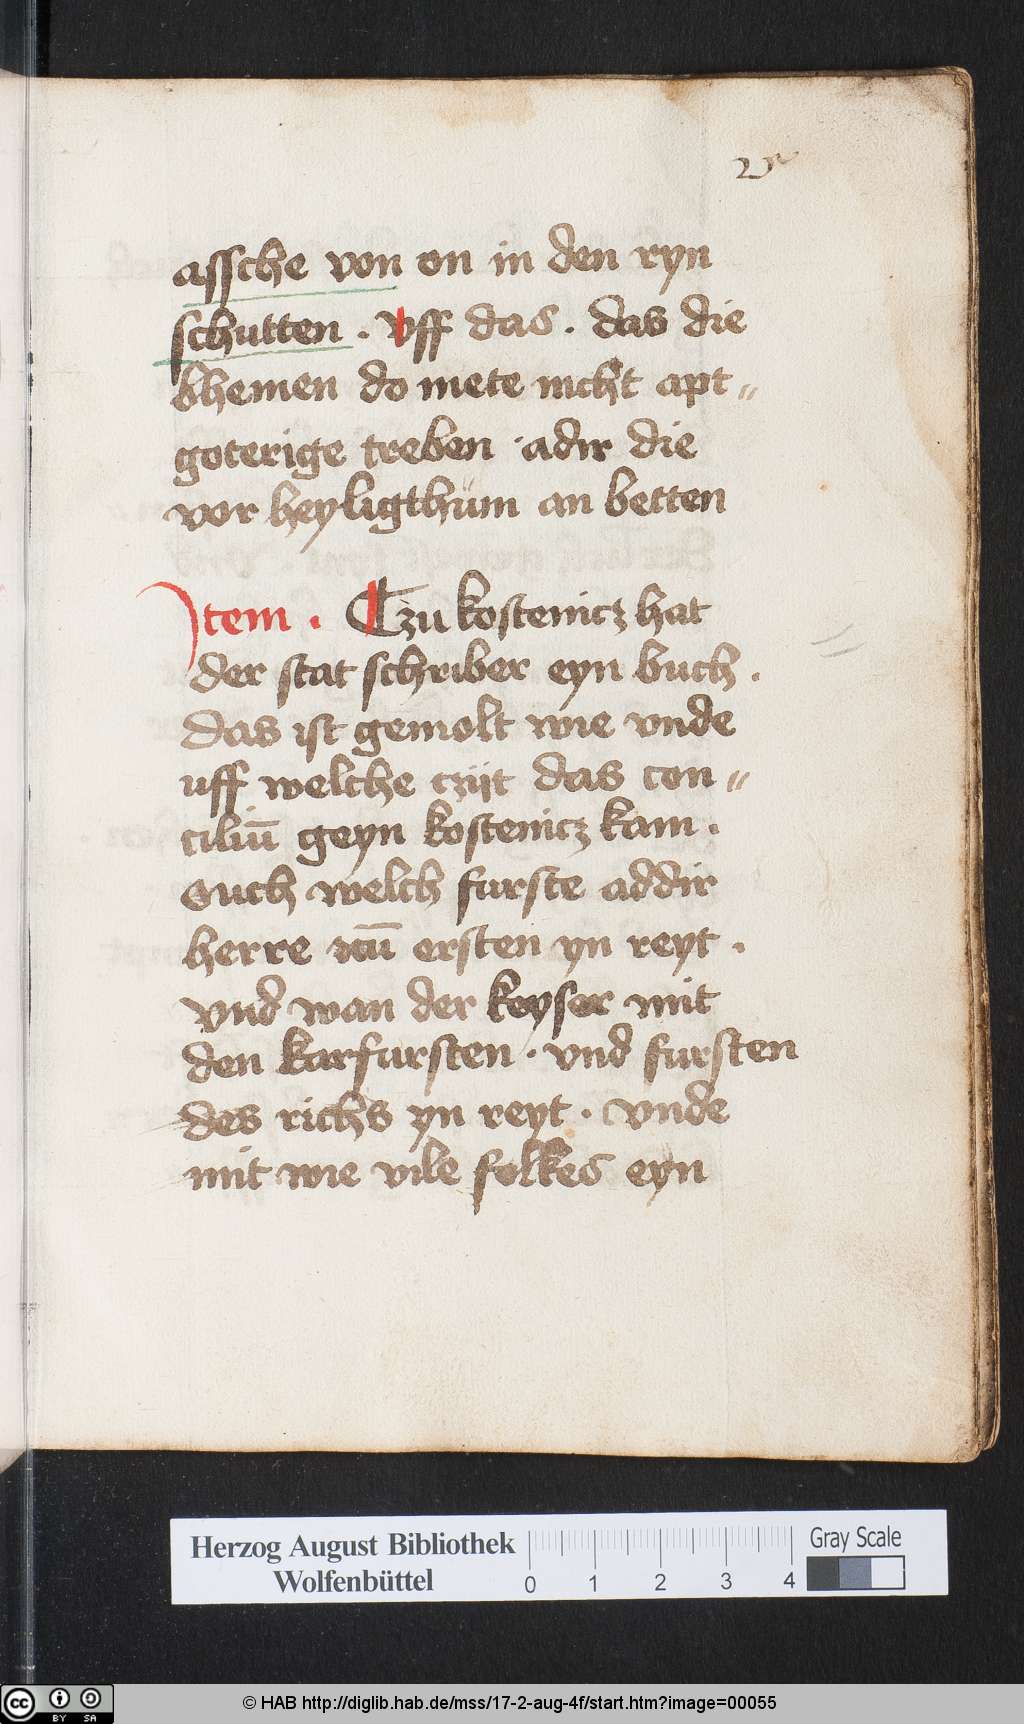 assche von on in den ryn
schutten . vff das . das die
bhemen do mete nicht apt〃
goterige treben · adir die
vor heyligthum an betten
Item . Czu kostenicz hat
der stat schriber eyn buch .
das ist gemolt wie vnde
uff welche czijt das con〃
ciliū geyn kostenicz kam .
ouch welch furste addir
herre ersten yn reyt .
vnd wan der keyser mit
den karfursten . vnd fursten
des richs yn reyt . vnde
mit wie vile folkes eyn
Herzog August Bibliothek
Wolfenbüttel
0 1 2 3 4
Gray Scale
cc BY SA
© HAB http://diglib.hab.de/mss/17-2-aug-4f/start.htm?image=00055